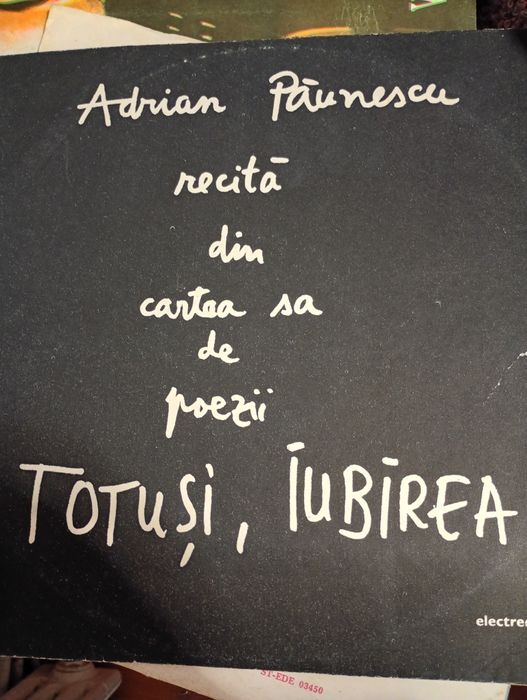 Adrian Păunescu
recită
din
cartea sa
de
poezii
TOTUȘI, IUBIREA
ST-EDE 03450